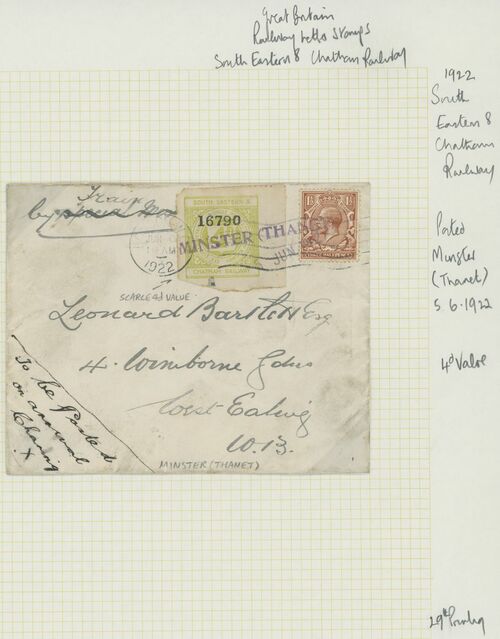 Great Britain
Railway Letter Stamps
South Eastern & Chatham Railway
1922
South
Eastern &
Chatham
Railway
Posted
Minster
(Thanet)
5.6.1922
4d Value
by Train
SOUTH EASTERN &
16790
CHATHAM RAILWAY
MINSTER (THANET)
JUN
1922
1½ 1½
SCARCE 4d VALUE
Leonard Bartlett Esq
4. Wimborne Gdns
West Ealing
W.13.
To be Posted
on arrival
Charing X
MINSTER (THANET)
29th Printing